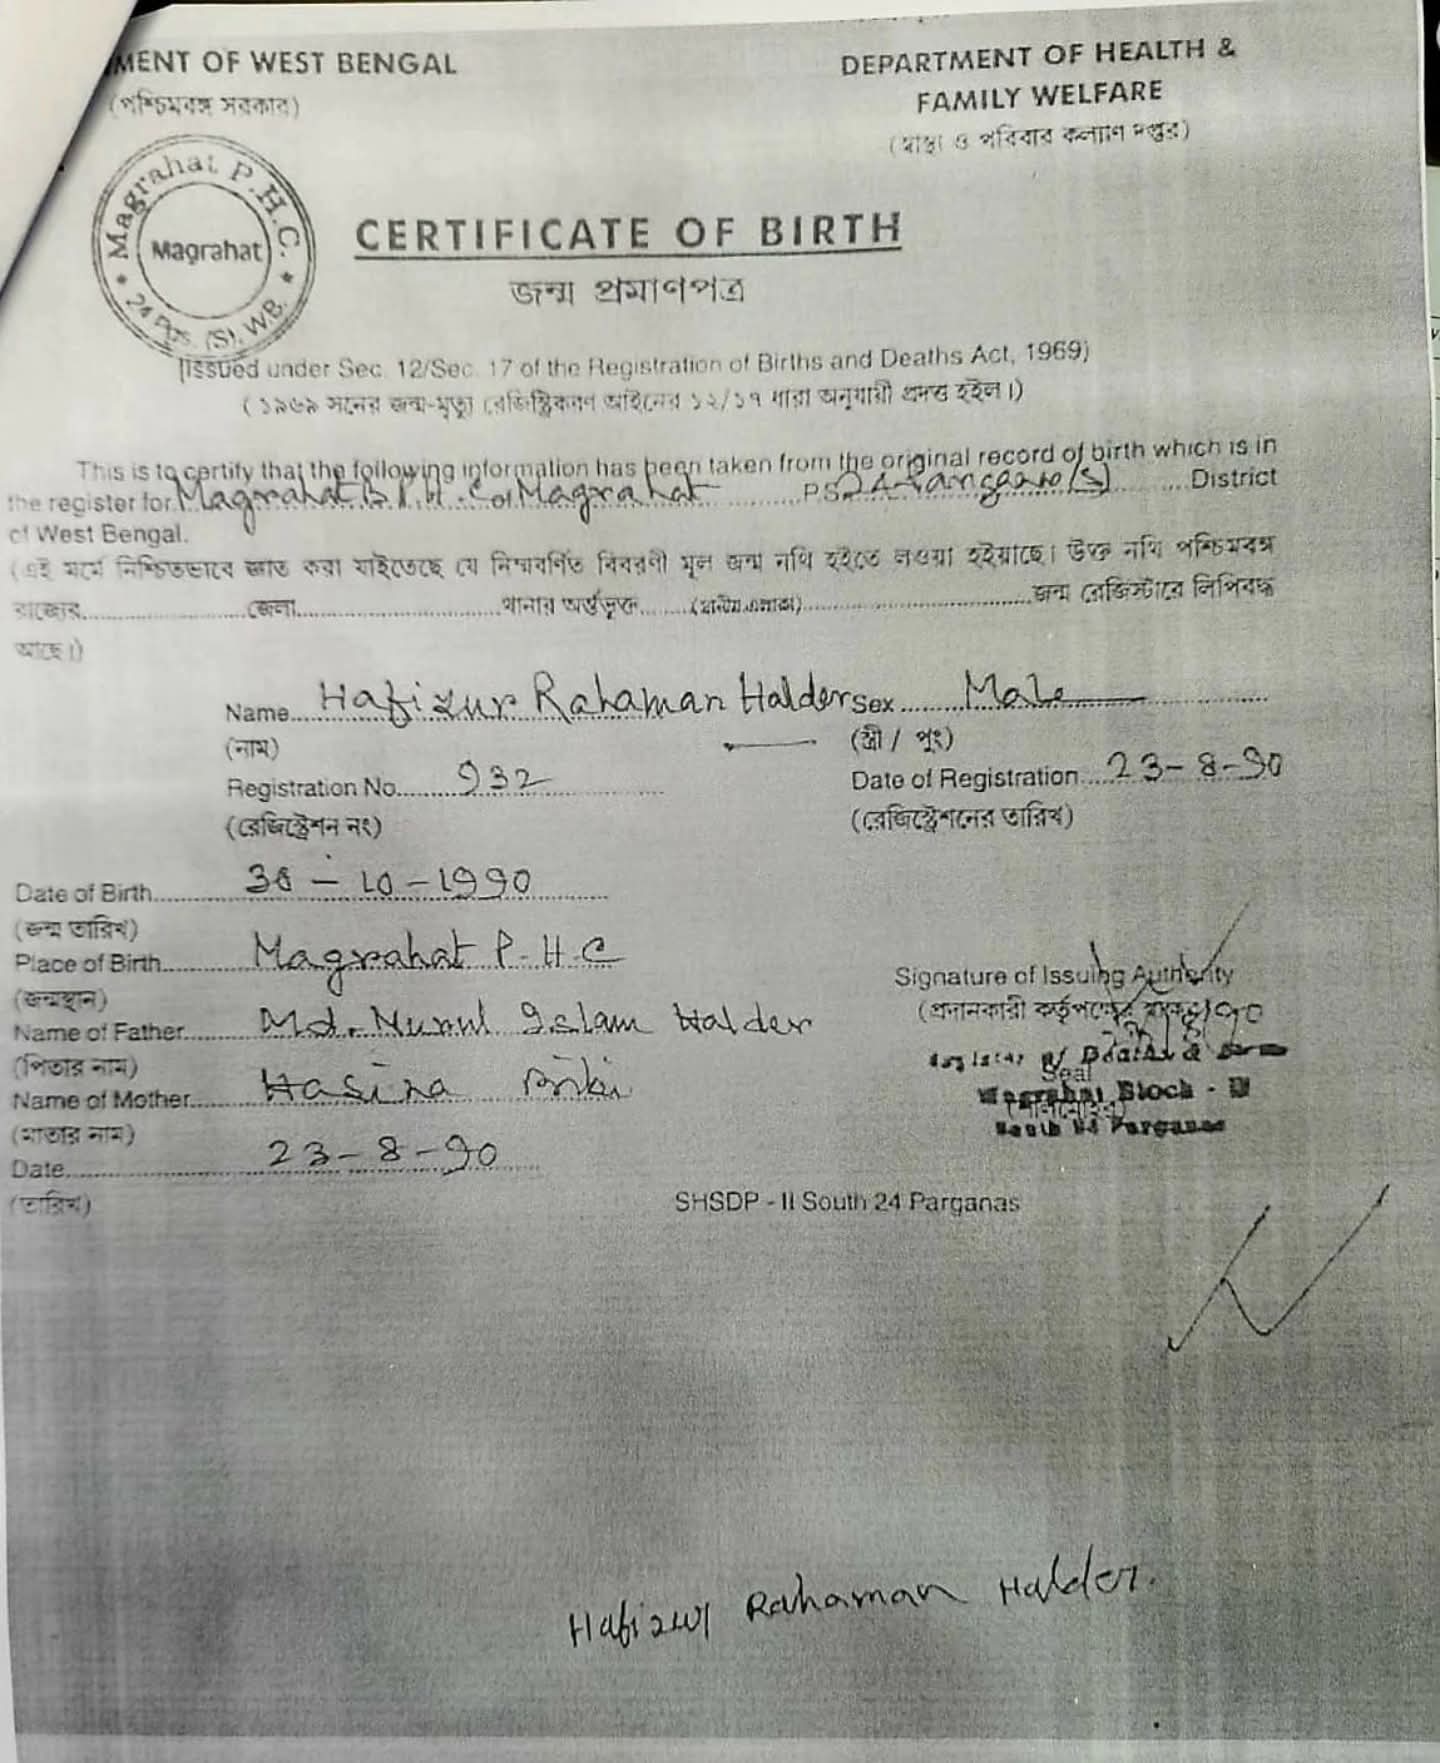 MENT OF WEST BENGAL
(পশ্চিমবঙ্গ সরকার)
DEPARTMENT OF HEALTH &
FAMILY WELFARE
(স্বাস্থ্য ও পরিবার কল্যাণ দপ্তর)
Magrahat P.H.C.
Magrahat
24 Pgs. (S), W.B.
CERTIFICATE OF BIRTH
জন্ম প্রমাণপত্র
(Issued under Sec. 12/Sec. 17 of the Registration of Births and Deaths Act, 1969)
(১৯৬৯ সনের জন্ম-মৃত্যু রেজিস্ট্রিকরণ আইনের ১২/১৭ ধারা অনুযায়ী প্রদত্ত হইল।)
This is to certify that the following information has been taken from the original record of birth which is in
the register for Magrahat of Magrahat P.S. District
of West Bengal.
(এই মর্মে নিশ্চিতভাবে জ্ঞাত করা যাইতেছে যে নিম্নবর্ণিত বিবরণী মূল জন্ম নথি হইতে লওয়া হইয়াছে। উক্ত নথি পশ্চিমবঙ্গ
রাজ্যের জেলা থানার অর্ন্তভুক্ত (স্থানীয় এলাকা) জন্ম রেজিস্টারে লিপিবদ্ধ
আছে।)
Name Hafizur Rahaman Halder Sex Male
(নাম) (স্ত্রী / পুং)
Registration No. 932 Date of Registration 23-8-90
(রেজিস্ট্রেশন নং) (রেজিস্ট্রেশনের তারিখ)
Date of Birth -10-1990
(জন্ম তারিখ)
Place of Birth Magrahat P.H.C
(জন্মস্থান)
Name of Father Md. Nurul Islam Halder
(পিতার নাম)
Name of Mother Hasina Bibi
(মাতার নাম)
Date 23-8-90
(তারিখ)
Signature of Issuing Authority
(প্রদানকারী কর্তৃপক্ষের
Seal
Magrahat Block - II
South 24 Parganas
SHSDP - II South 24 Parganas
Hafizur Rahaman Halder.